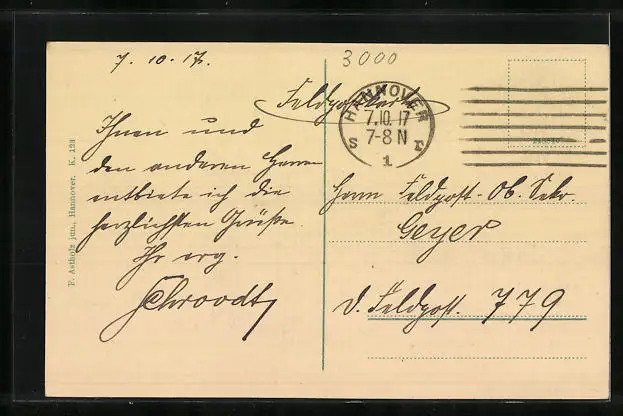 7. 10. 17.
3000
Feldpostkarte
HANNOVER
7.10.17
7-8 N
S
1
Ihnen und
den anderen Herren
entbiete ich die
herzlichsten Grüße.
Ihr erg.
Schroodt
Herrn Feldpost-Ob. Sekr.
Geyer
d. Feldpost. 779
F. Astholz jun., Hannover. K. 123